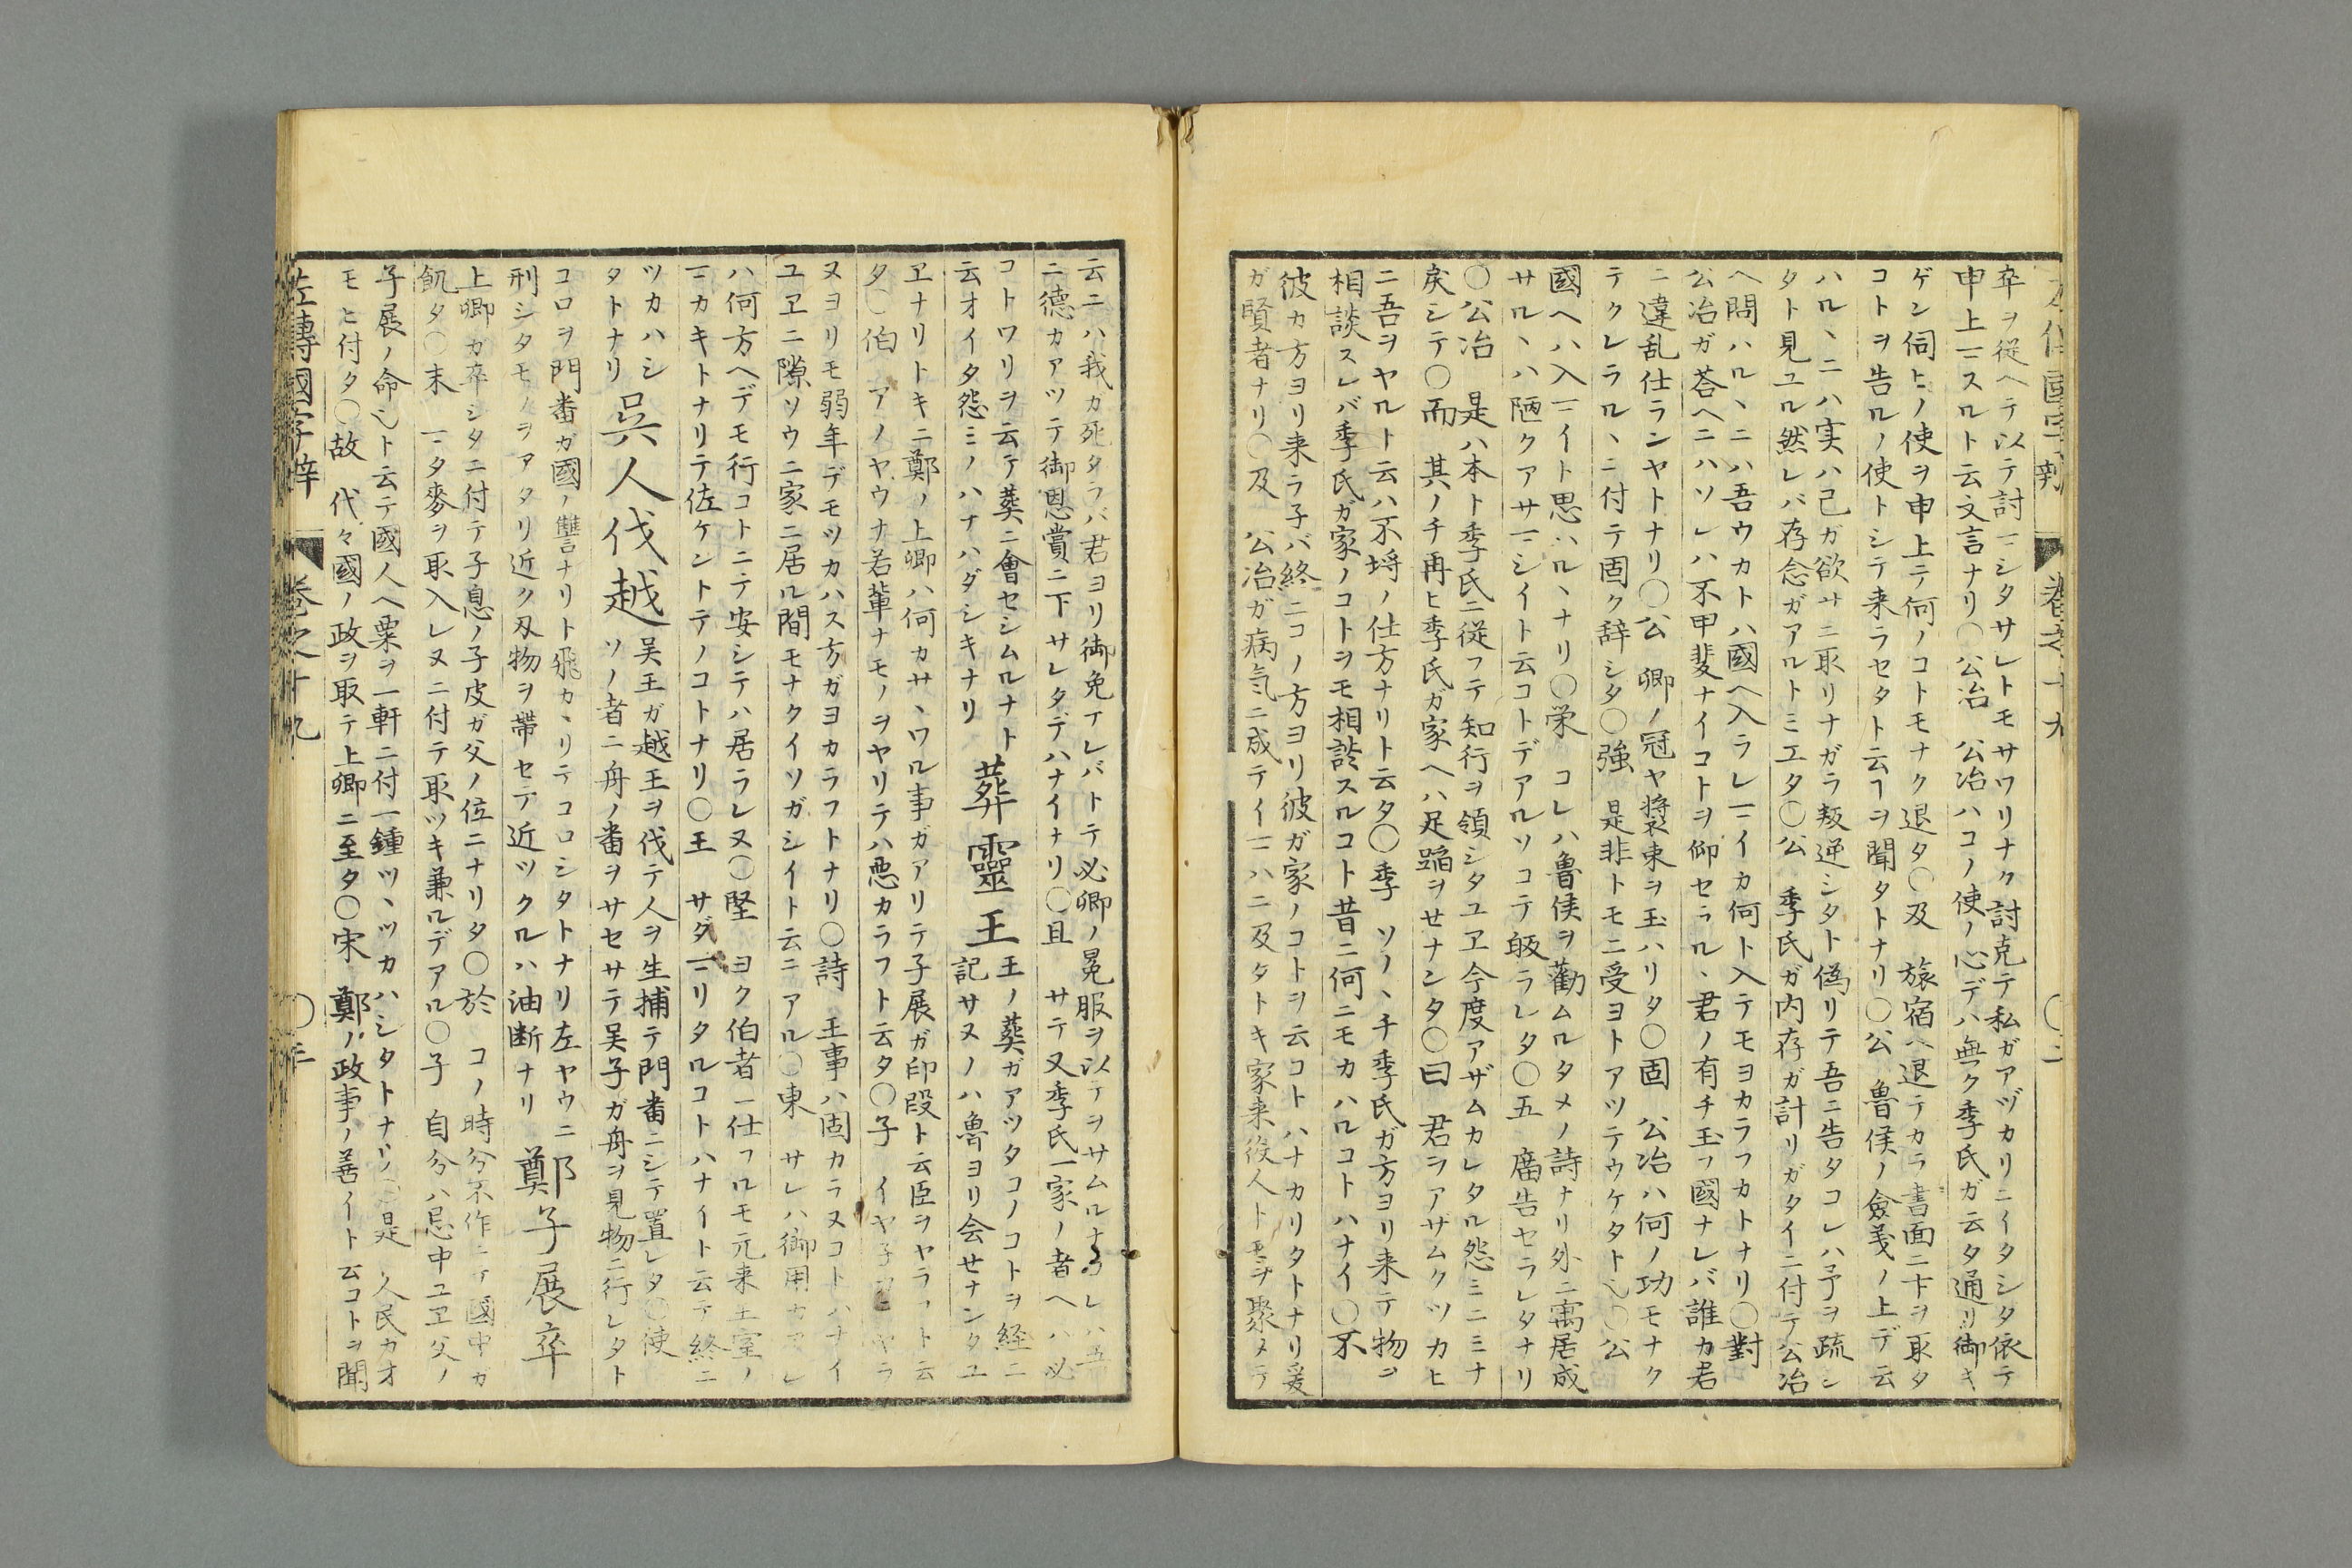 卒ヲ従ヘテ以テ討マシタサレトモサワリナク討克テ私ガアヅカリニイタシタ依テ
申上マスルト云文言ナリ〇公冶　公冶ハコノ使ノ心デハ無ク季氏ガ云タ通リ御キ
ゲン伺トノ使ヲ申上テ何ノコトモナク退タ〇及　旅宿ヘ退テカラ書面ニ下ヲ取タ
コトヲ告ルノ使トシテ来ラセタト云フヲ聞タトナリ〇公　魯侯ノ僉義ノ上デ云
ハル丶ニハ実ハ己ガ欲サニ取リナガラ叛逆シタト偽リテ吾ニ告タコレハ予ヲ疏シ
タト見ユル然レバ存念ガアルトミエタ〇公　季氏ガ内存ガ計リガタイニ付テ公冶
ヘ問ハル丶ニハ吾ウカトハ國ヘ入ラレマイカ何ト入テモヨカラフカトナリ〇對
公冶ガ荅ヘニハソレハ不甲斐ナイコトヲ仰セラル丶君ノ有チ玉フ國ナレバ誰カ君
ニ違乱仕ランヤトナリ〇公　卿ノ冠ヤ装束ヲ玉ハリタ〇固　公冶ハ何ノ功モナク
テクレラル丶ニ付テ固ク辞シタ〇強　是非トモニ受ヨトアツテウケタト也〇公
國ヘハ入マイト思ハル丶ナリ〇栄　コレハ魯侯ヲ勸ムルタメノ詩ナリ外ニ寓居成
サル丶ハ陋クアサマシイト云コトデアルソコテ皈ラレタ〇五　廟告セラレタナリ
〇公冶　是ハ本ト季氏ニ従フテ知行ヲ領シタユヱ今度アザムカレタル怨ミニミナ
戻シテ〇而　其ノチ再ヒ季氏ガ家ヘハ足蹈ヲせナンタ〇曰　君ヲアザムクツカヒ
ニ吾ヲヤルト云ハ不埒ノ仕方ナリト云タ〇季　ソノ丶チ季氏ガ方ヨリ来テ物ヲ
相談スレバ季氏ガ家ノコトヲモ相談スルコト昔ニ何ニモカハルコトハナイ〇不
彼カ方ヨリ来ラ子バ終ニコノ方ヨリ彼ガ家ノコトヲ云コトハナカリタトナリ爰
ガ賢者ナリ〇及　公冶ガ病气ニ成テイマハニ及タトキ家来役人トモヲ聚メテ
云ニハ我カ死タラバ君ヨリ御免アレバトテ必卿ノ冕服ヲ以テヲサムルナ
ニ德カアツテ御恩賞ニ下サレタデハナイナリ〇且　サテ又季氏一家ノ者ヘハ必
コトワリヲ云テ葬ニ會セシムルナト　葬靈王　王ノ葬ガアツタコノコトヲ経ニ
云オイタ怨ミノハナハダシキナリ　記サヌノハ魯ヨリ会せナンタユ
ヱナリトキニ鄭ノ上卿ハ何カサ丶ワル事ガアリテ子展ガ印段ト云臣ヲヤラフト云
タ〇伯　アノヤウナ若輩ナモノヲヤリテハ悪カラフト云タ〇子　イヤ子
ヌヨリモ弱年デモツカハス方ガヨカラフトナリ〇詩　王事ハ固カラヌコトハナイ
ユヱニ隙ソウニ家ニ居ル間モナクイソガシイト云ニアル〇東　サレハ御用
ハ何方ヘデモ行コトニテ安シテハ居ラレヌ〇堅　ヨク伯者ニ仕フルモ元来王室ノ
マニカキトナリテ佐ケントテノコトナリ〇王　サダマリタルコトハナイト云テ終ニ
ツカハシ　呉人伐越　吴王ガ越王ヲ伐テ人ヲ生捕テ門番ニシテ置レタ〇使
タトナリ　ソノ者ニ舟ノ番ヲサセサテ吴子ガ舟ヲ見物ニ行レタト
コロヲ門番ガ國ノ讐ナリト飛カ丶リテコロシタトナリ左ヤウニ　鄭子展卒
刑シタモノヲアタリ近ク刄物ヲ帯セテ近ツクルハ油断ナリ
上卿ガ卒シタニ付テ子息ノ子皮ガ父ノ位ニナリタ〇於　コノ時分不作ニテ國中ガ
飢タ〇未　マタ麥ヲ取入レヌニ付テ取ツキ兼ルデアル〇子　自分ハ忌中ユヱ父ノ
子展ノ命也ト云テ國人ヘ粟ヲ一軒ニ付一鍾ツ丶ツカハシタトナリ〇是　人民カオ
モヒ付タ〇故　代々國ノ政ヲ取テ上卿ニ至タ〇宋　鄭ノ政事ノ善イト云コトヲ聞
左傳國字辨　巻之十九